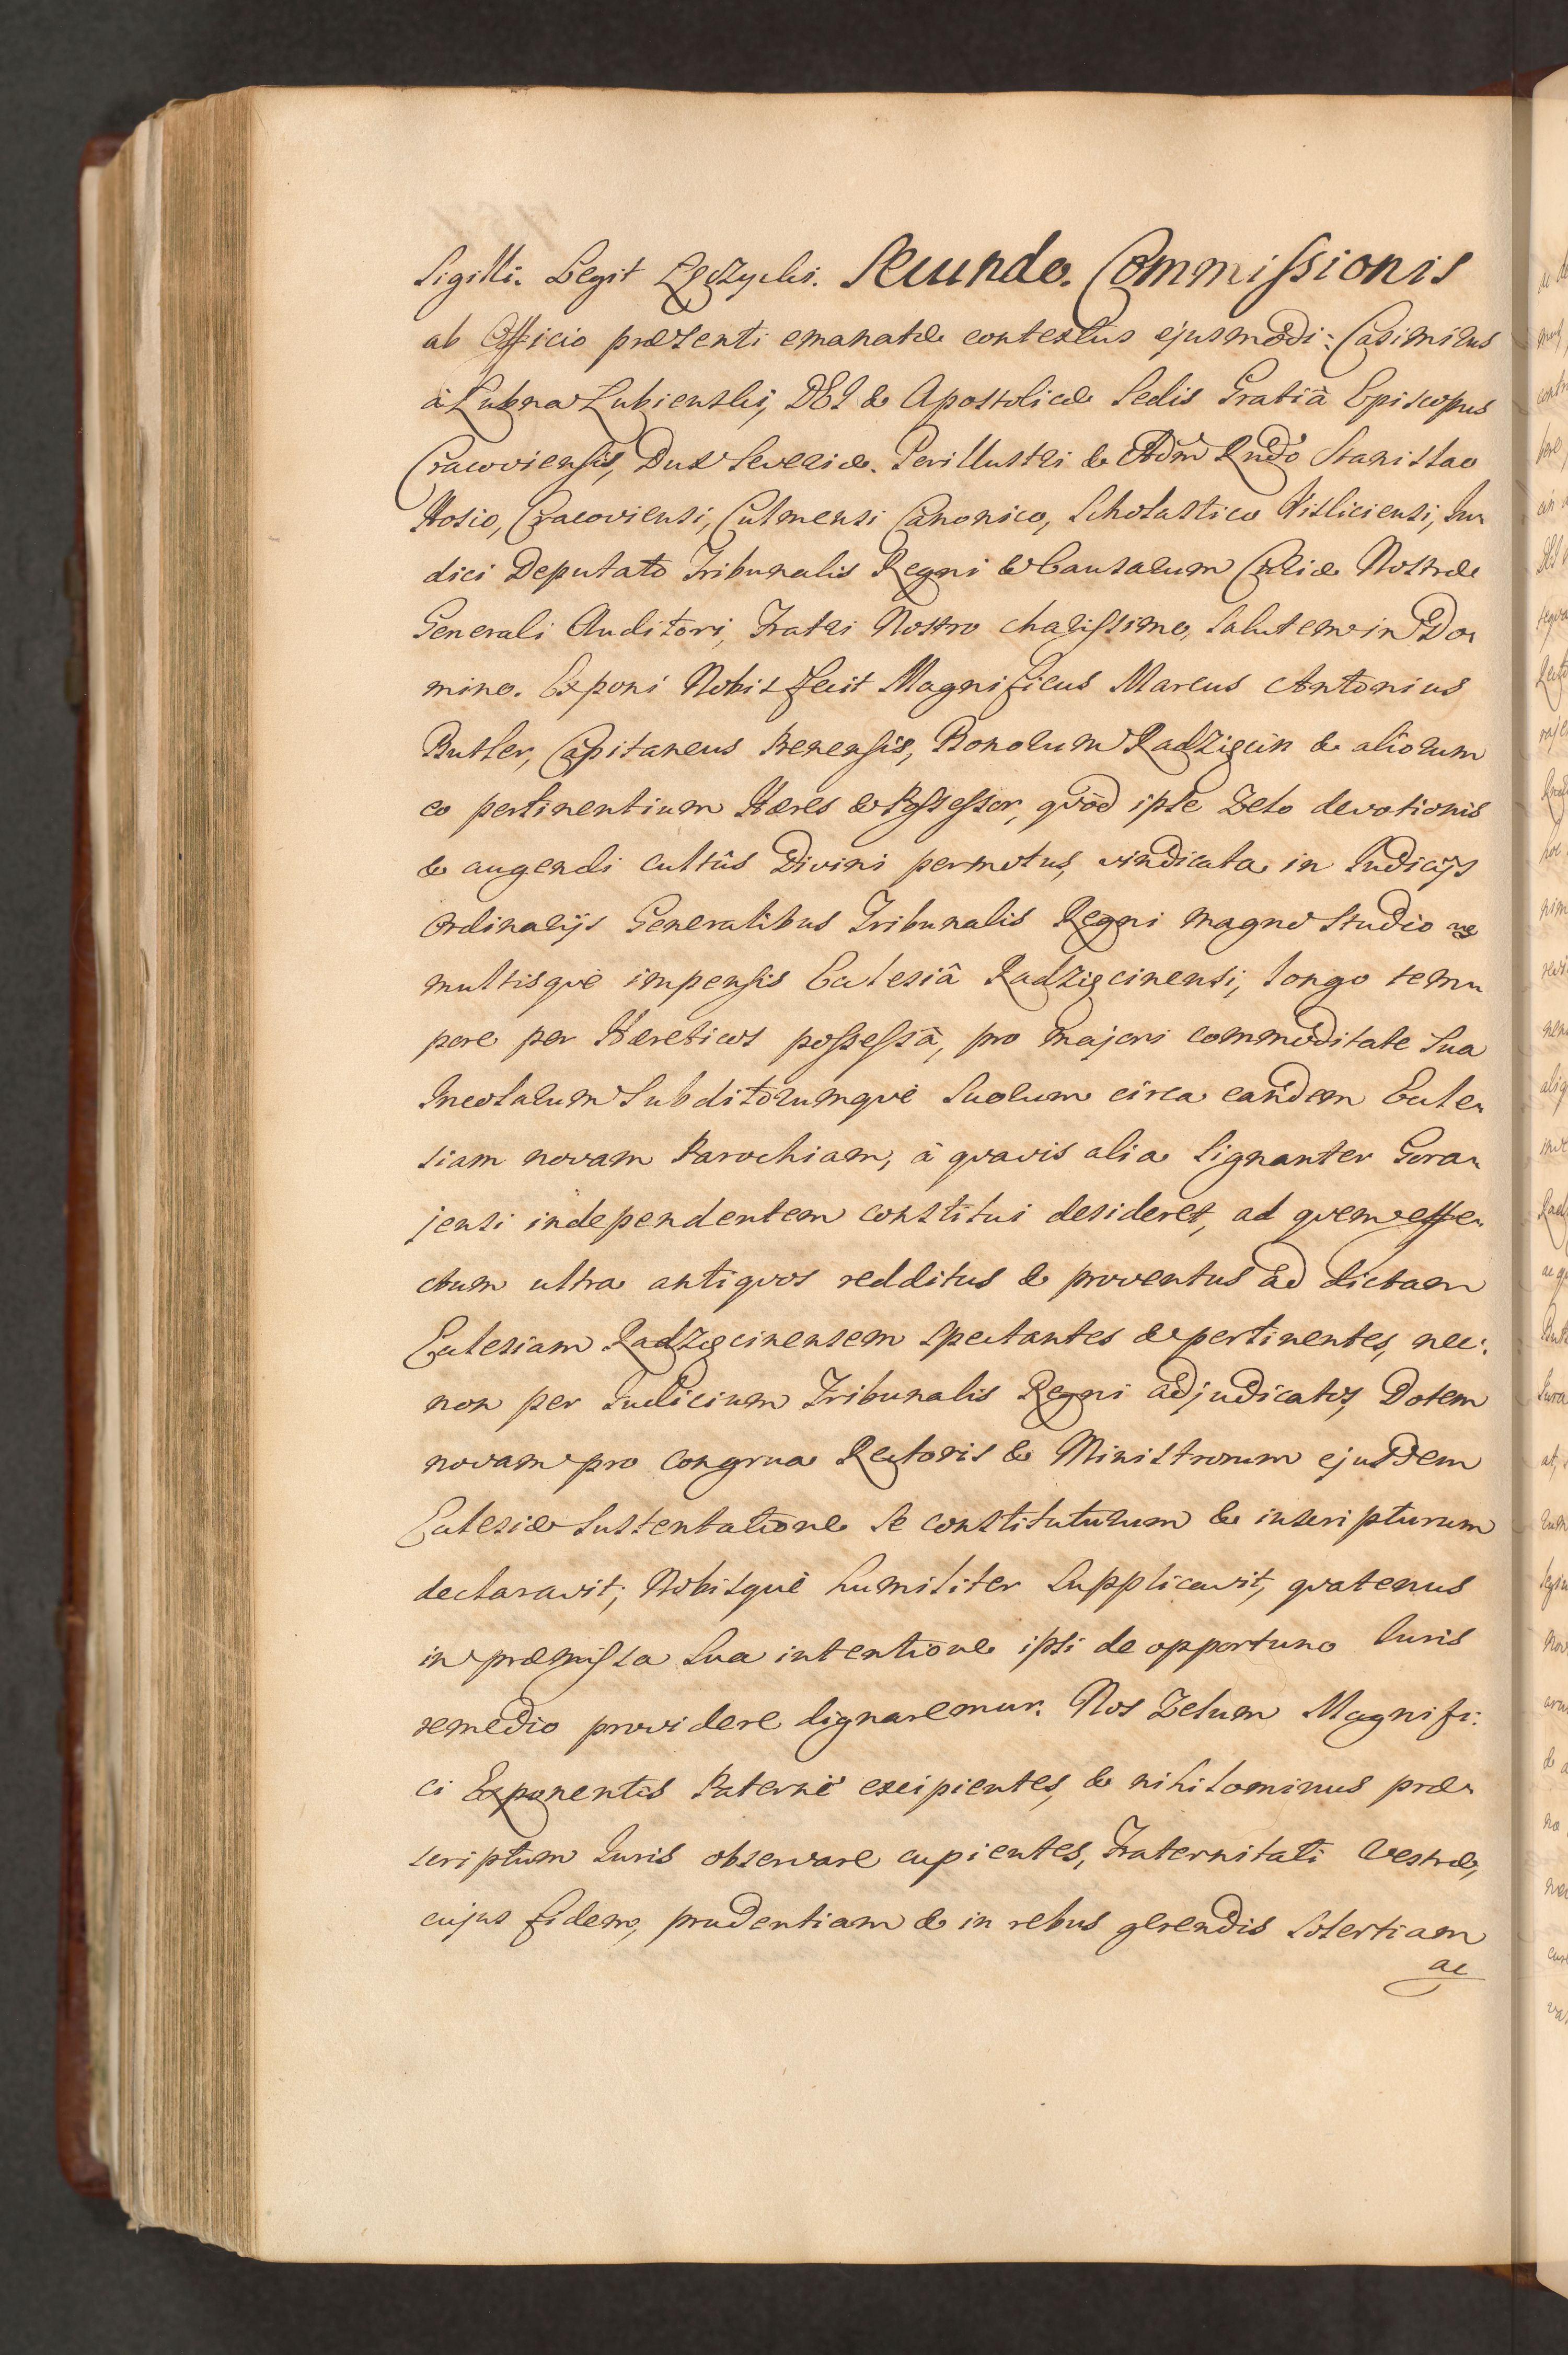 Sigilli. Legit Łęczycki. Secundo. Commissionis
ab Officio præsenti emanatæ contextus ejusmodi: Casimirus
à Łubna Łubienski, DEI & Apostolicæ Sedis Gratiâ Episcopus
Cracoviensis, Dux Severiæ. Perillustri & Adm Rndo Stanislao
Hosio, Cracoviensi, Culmensi Canonico, Scholastico Visliciensi, Ju-
dici Deputato Tribunalis Regni & Causarum Curiæ Nostræ
Generali Auditori, Fratri Nostro charissimo, Salutem in Do-
mino. Exponi Nobis fecit Magnificus Marcus Antonius
Butler, Capitaneus Prenensis, Bonorum Radzięcin & aliorum
eo pertinentium Hæres & Possessor, qvòd ipse Zelo devotionis
& augendi cultûs Divini permotus, vindicata in Iudicijs
ordinarijs Generalibus Tribunalis Regni magno studio
multisqve impensis Eclesiâ Radzięcinensi, longo tem-
pore per Hæreticos possessâ, pro majori commoditate sua
Incolarum Subditorumqve Suorum circa eandem Ecle-
siam novam Parochiam, à qvavis alia signanter Gora-
jensi independentem constitui desideret, ad qvem effe-
ctum ultra antiqvos redditus & proventus ad dictam
Eclesiam Radzięcinensem spectantes & pertinentes, nec-
non per Iudicium Tribunalis Regni adjudicatos, Dotem
novam pro congrua Rectoris & Ministrorum ejusdem
Eclesiæ Sustentatione se constituturum & inscripturum
declaravit; Nobisqve humiliter Supplicavit, qvatenus
in præmissa Sua intentione ipsi de opportuno Iuris
remedio providere dignaremur. Nos Zelum Magnifi-
ci Exponentis Paterne excipientes, & nihilominus præ-
scriptum Iuris observare cupientes, Fraternitati Vestræ,
cujus fidem, prudentiam & in rebus gerendis solertiam
ac